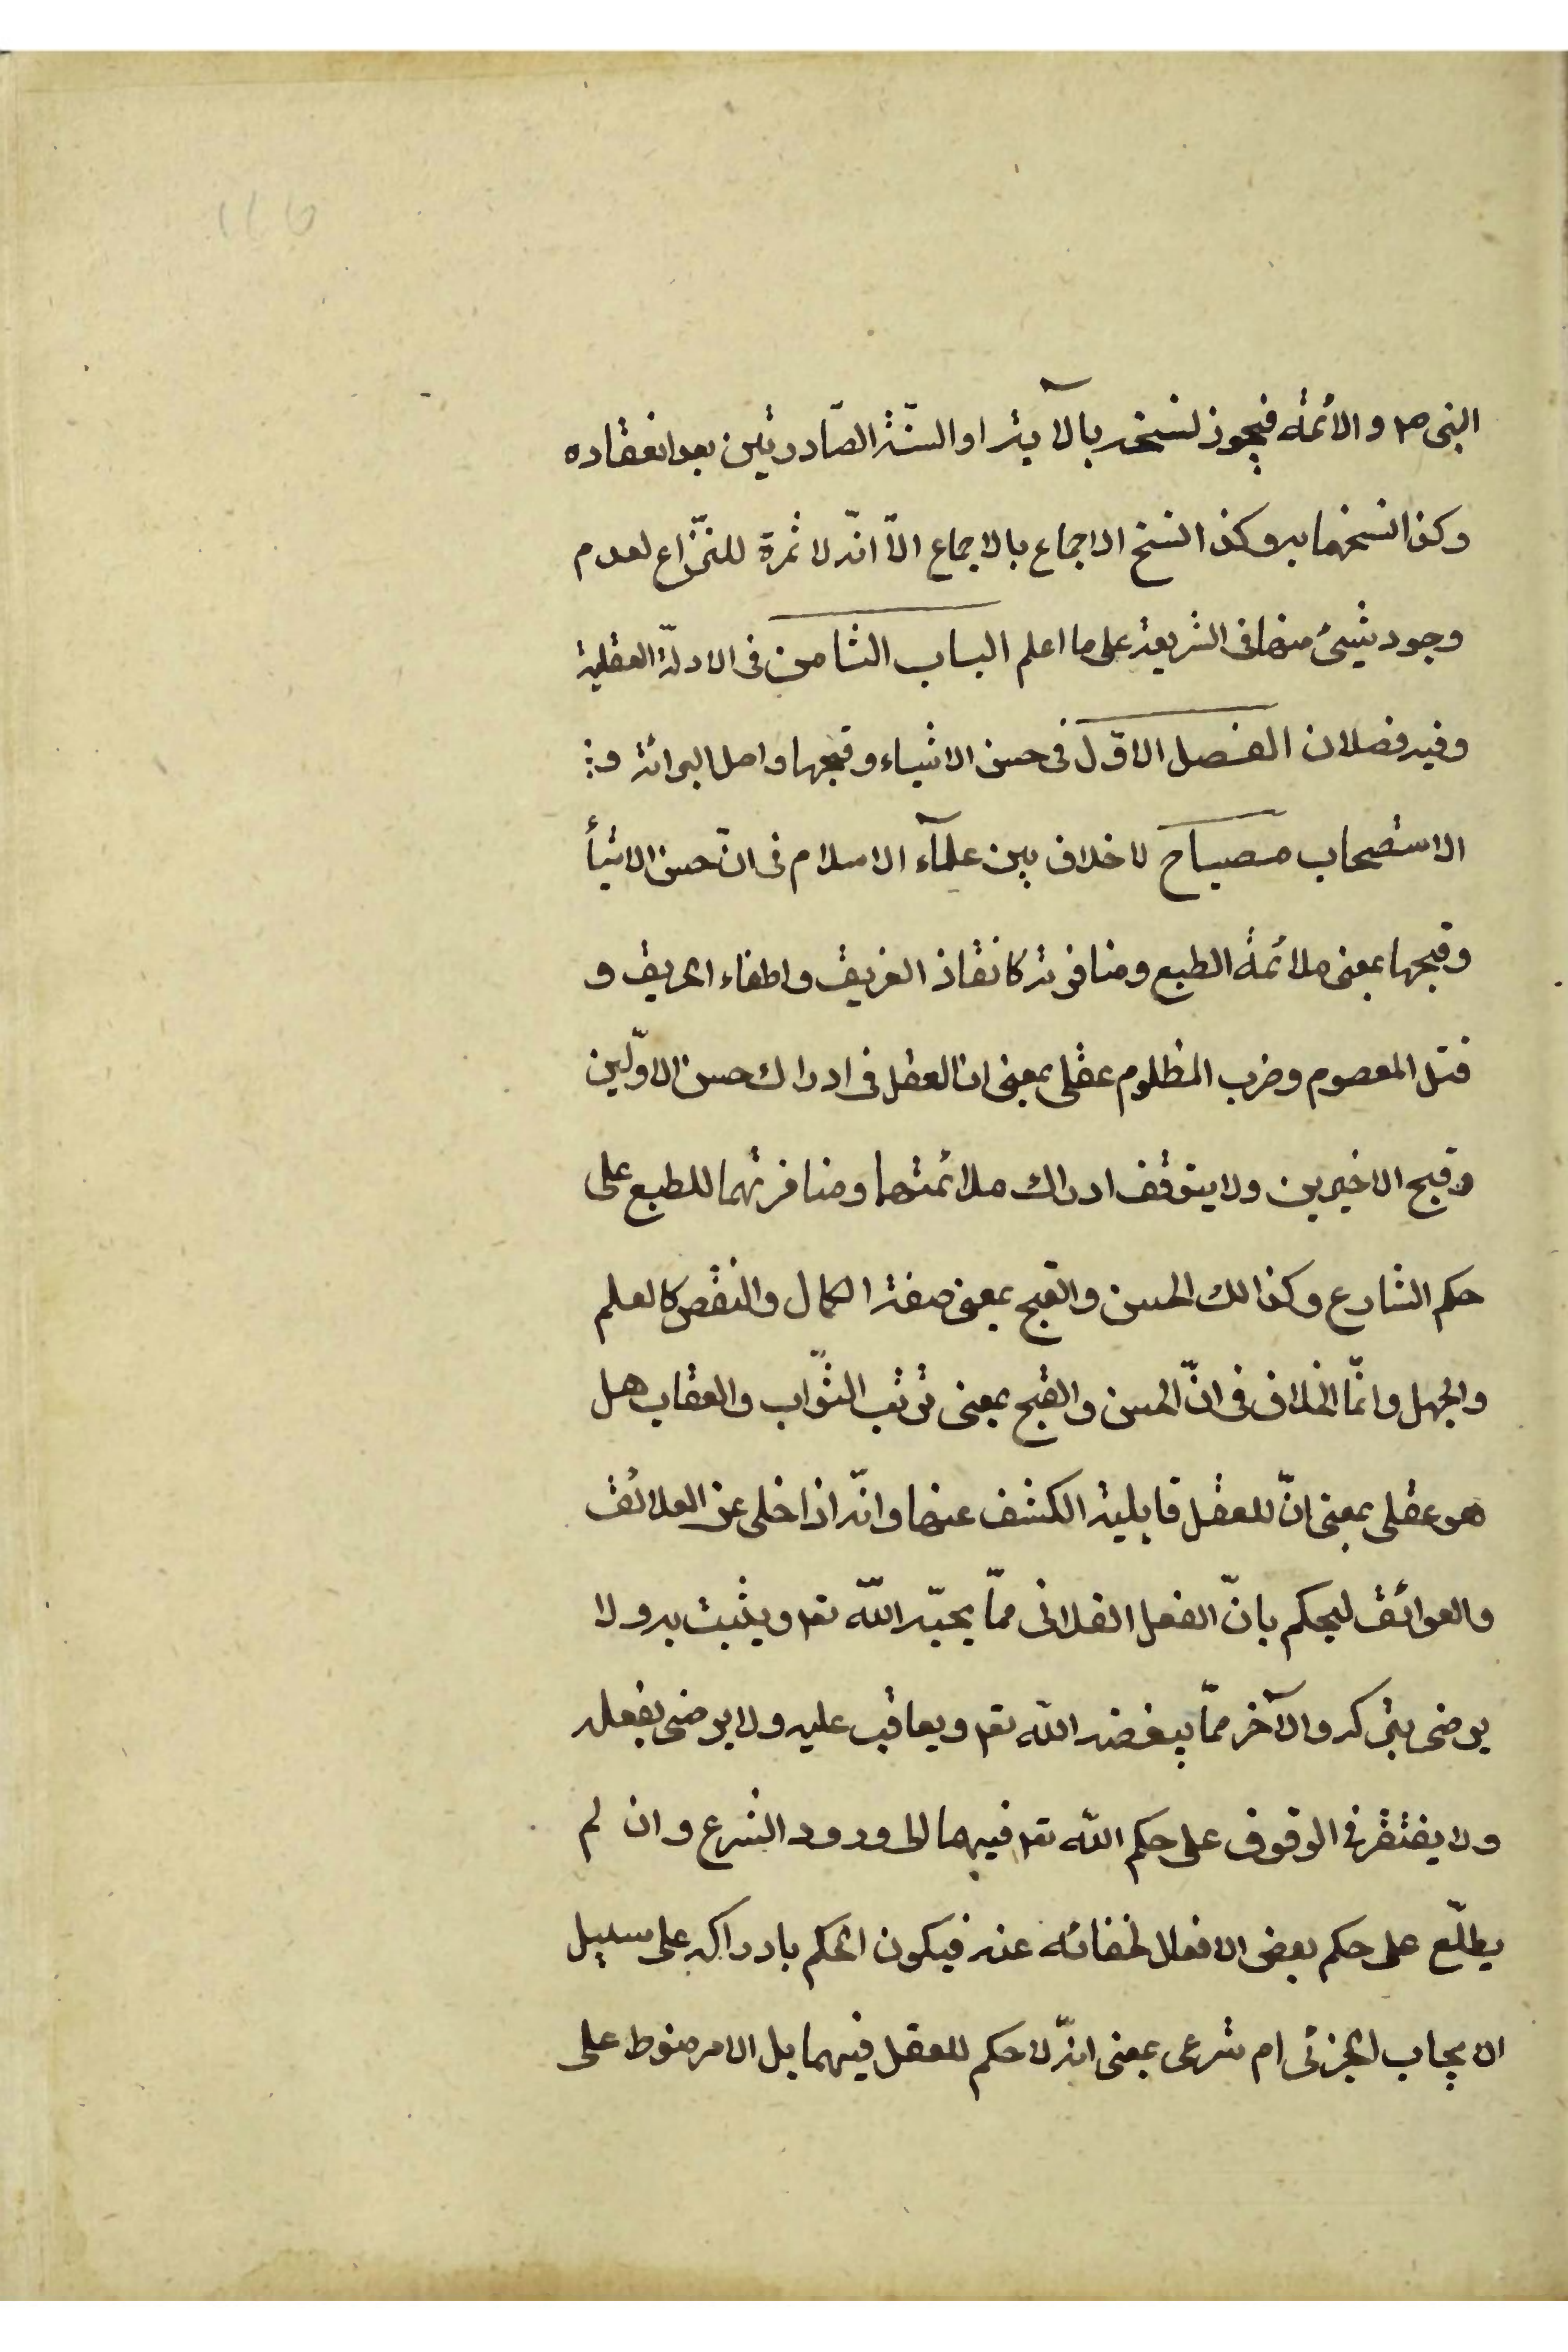 النبى ص والائمّه فيجوز نسخه بالآية او السنّة الصّادرتين بعد انعقاده
وكذا نسخهما به وكذا نسخ الاجماع بالاجماع الّا انّه لا ثمرة للنّزاع لعدم
وجود شيئ منها فى الشريعة على ما اعلم الباب الثامن فى الادلّة العقلية
وفيه فصلان الفصل الاوّل فى حسن الاشياء وقبحها واصل البرائة و
الاستصحاب مصباح لا خلاف بين علمآء الاسلام فى انّ حسن الاشيأ
وقبحها بمعنى ملائمة الطبع ومنافرته كانقاذ الغريق واطفاء الحريق و
قتل المعصوم وضرب المظلوم عقلى بمعنى ان العقل فى ادراك حسن الاوّلين
وقبح الاخيرين ولا يتوقف ادراك ملائمتهما ومنافرتهما للطبع على
حكم الشارع وكذالك الحسن والقبح بمعنى صفة الكمال والنقص كالعلم
والجهل وانّما الخلاف فى انّ الحسن والقبح بمعنى ترتب الثّواب والعقاب هل
هو عقلى بمعنى انّ للعقل قابلية الكشف عنها وانّه اذا خلى عن العلائق
والعوائق ليحكم بانّ الفعل الفلانى ممّا يحبّه اللّه تعه ويثبت به ولا
يرضى بتركه والآخر ممّا يبغضه اللّه تعه ويعاقب عليه ولا يرضى بفعله
ولا يفتقر فى الوقوف على حكم اللّه تعه فيهما الى ورود الشرع وان لم
يطلّع على حكم بعض الافعال لخفائه عنه فيكون الحكم بادراكه على سبيل
الايجاب الجزئى ام شرعى بمعنى انّه لا حكم للعقل فيهما بل الامر منوط على